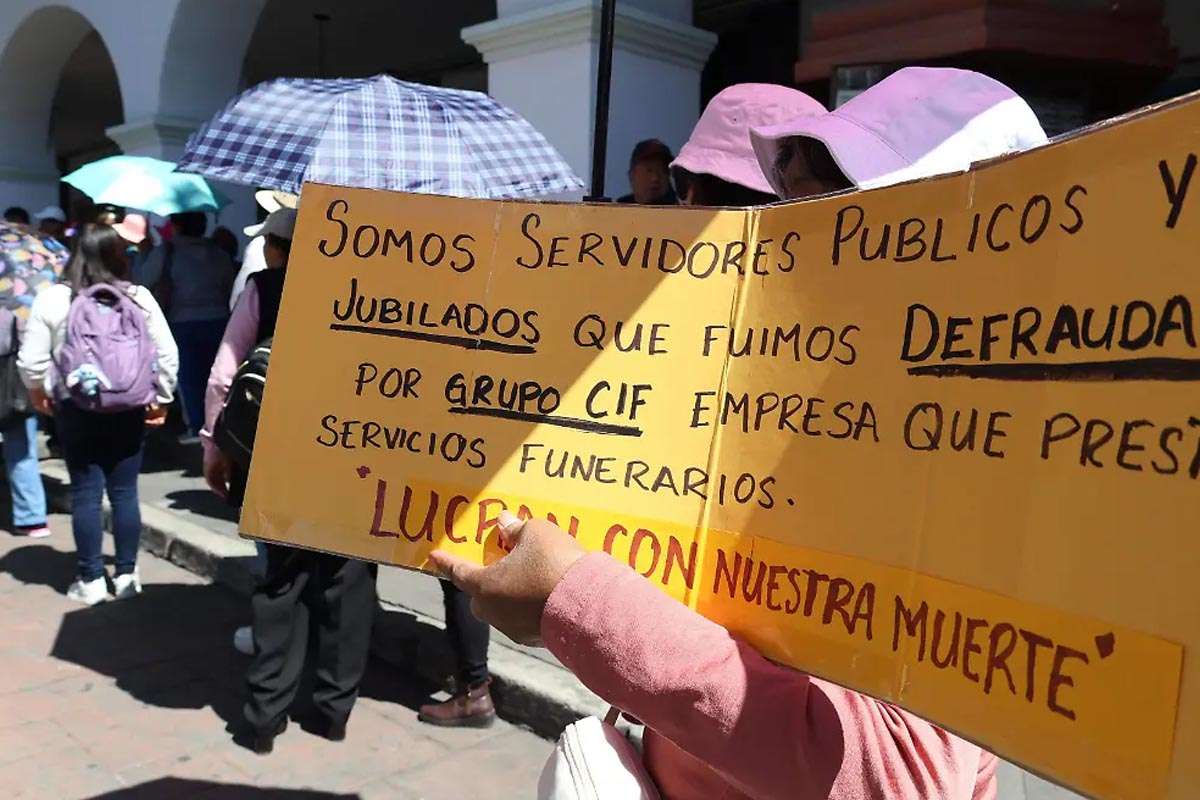 SOMOS SERVIDORES PUBLICOS Y
JUBILADOS QUE FUIMOS DEFRAUDA
POR GRUPO CIF EMPRESA QUE PREST
SERVICIOS FUNERARIOS.
"LUCRAN CON NUESTRA MUERTE"